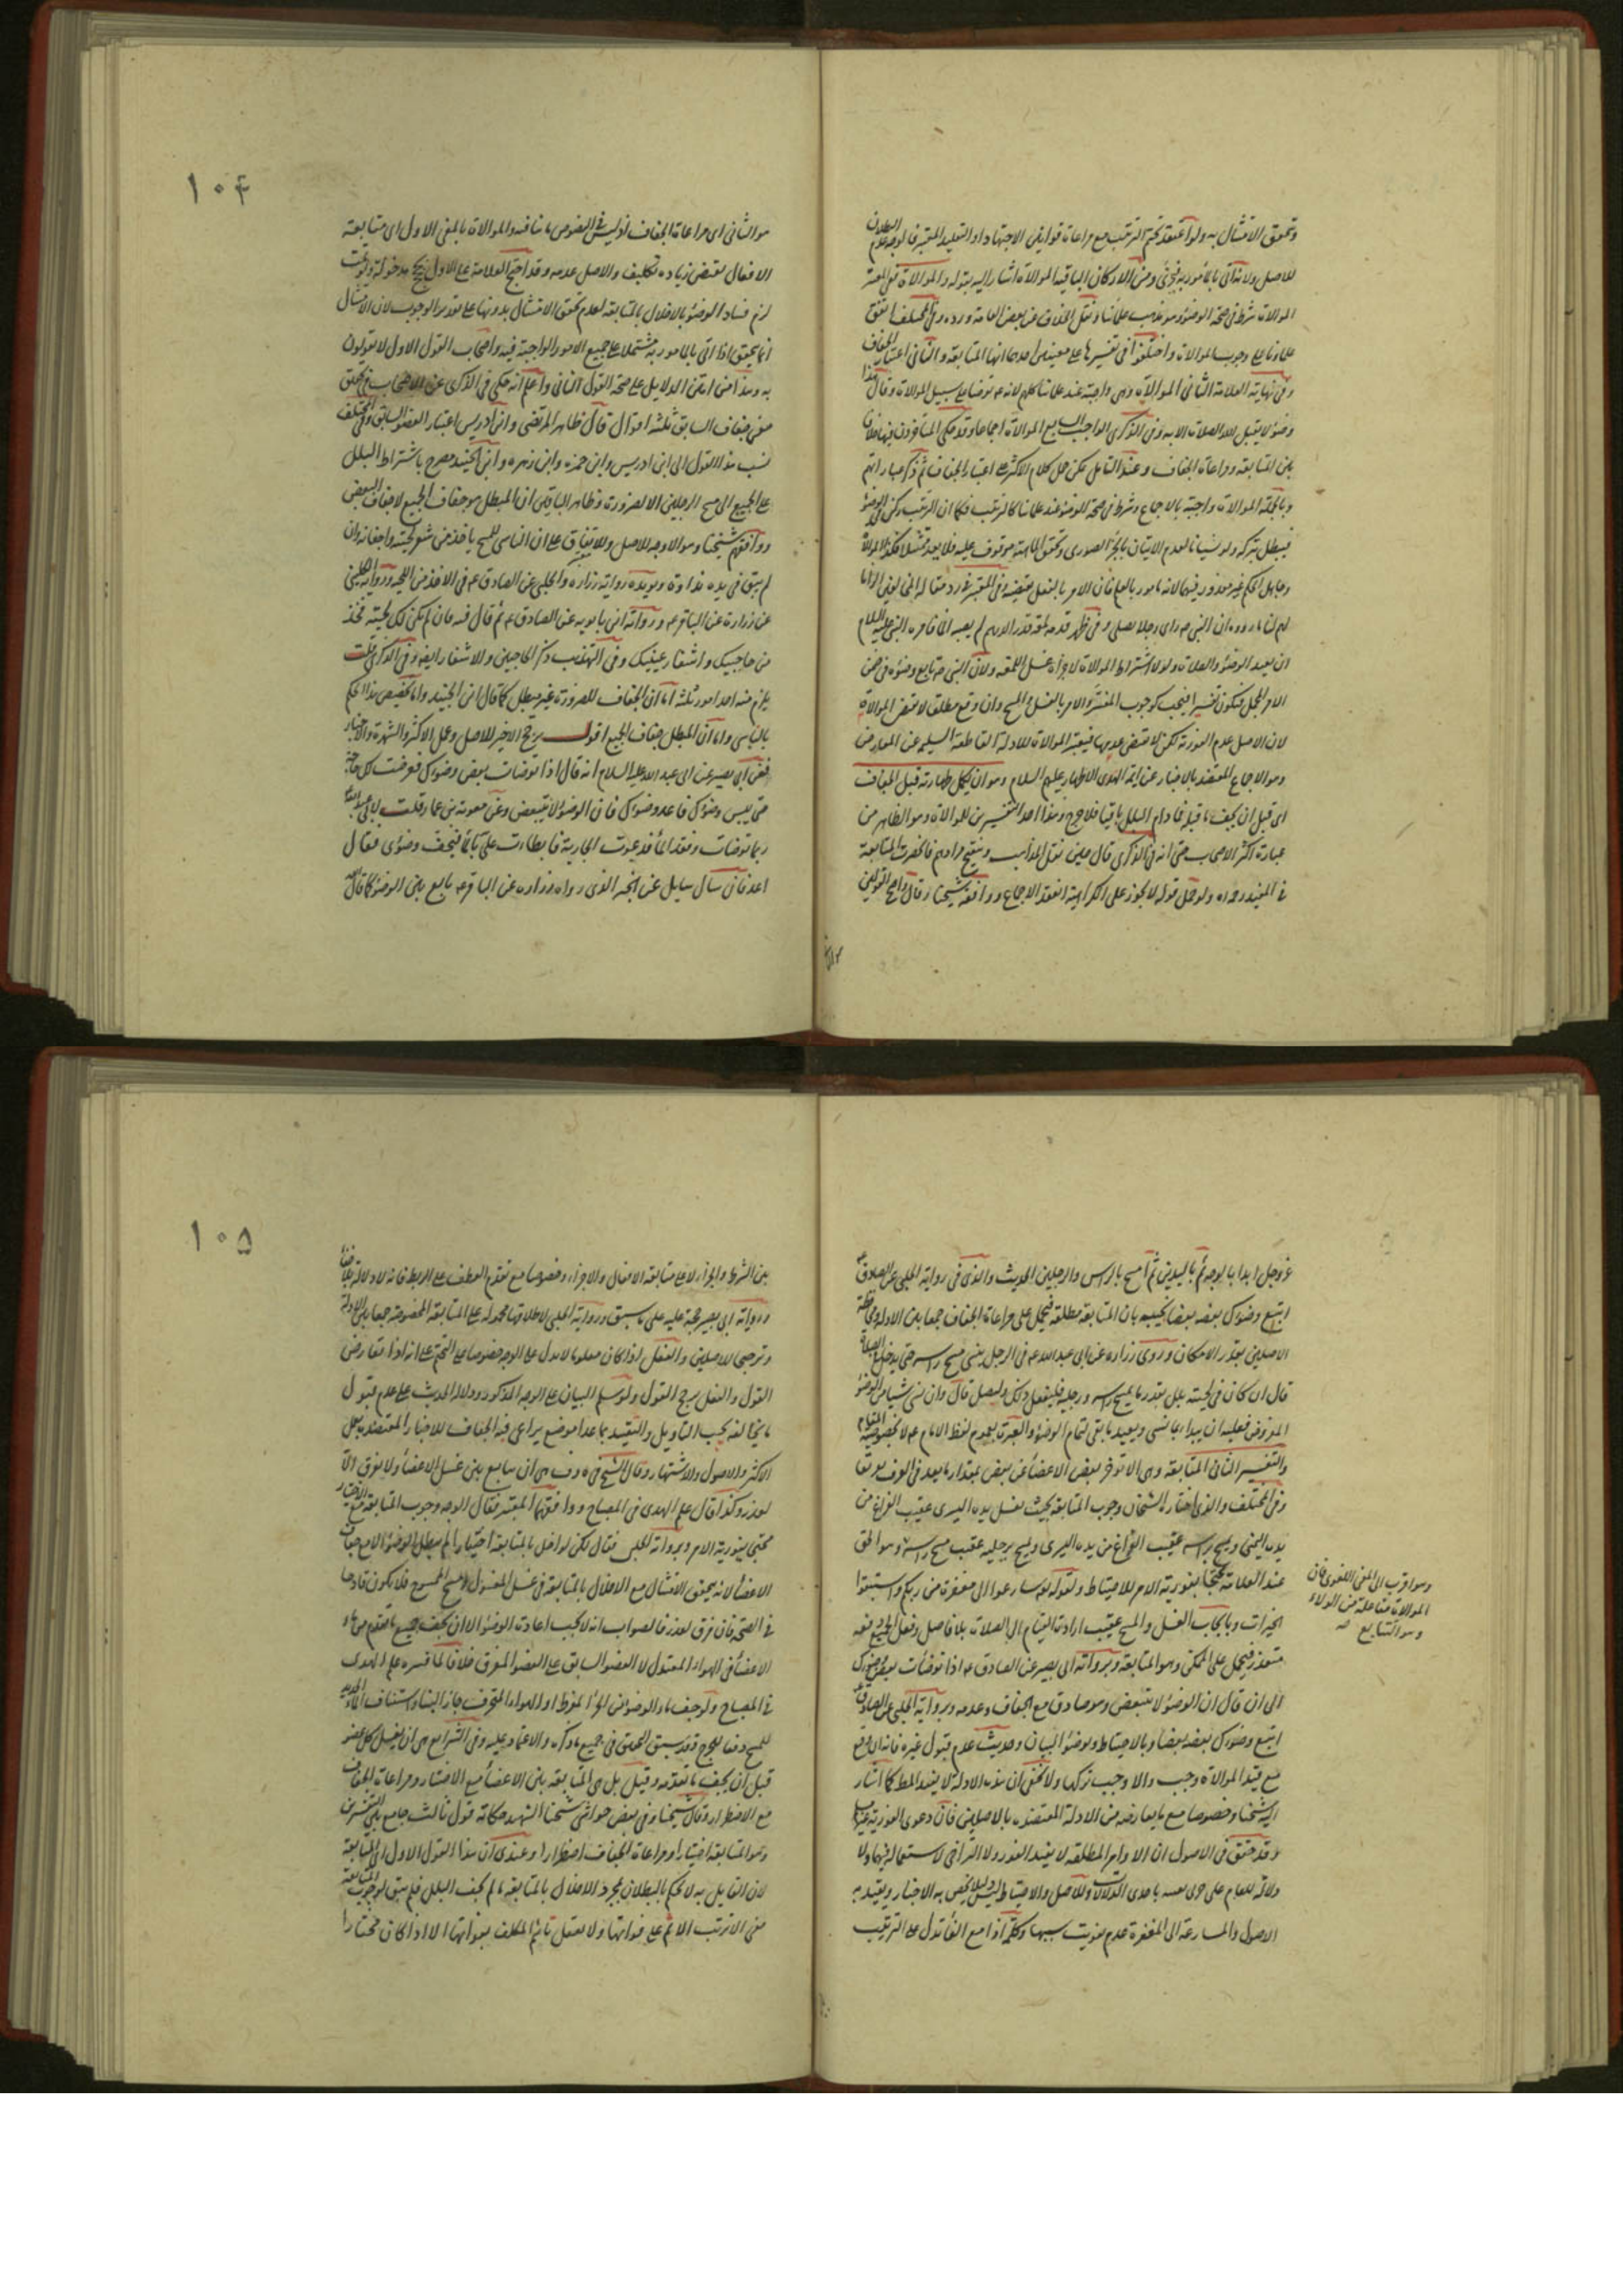 وتحقق الامتثال به ولو اعتقد تحتم الترتيب مع مراعات قوانين الاجتهاد او التقليد المعتبر فالوجه عدم البطلان
للاصل ولانه اتى بالمأمور به فيجزئ ومن الاركان الباقية الموالاة اشار اليه بقوله والموالاة ففي المعتبر
الموالات شرط في صحة الوضوء وهو مذهب علمائنا ونقل الخلاف عن بعض العامة ورده وفي المختلف اتفق
علماؤنا على وجوب الموالات واختلفوا في تفسيرها على معنيين احدهما انها المتابعة والثاني اعتبار الجفاف
وفي نهاية العلامة الثاني الموالاة وهي واجبة عند علمائنا كلهم لانه ع توضا على سبيل الموالات وقال هذا
وضوء لا يقبل الله الصلات الا به وفي الذكرى الواجب السابع الموالاة اجماعا وقد حكى المتاخرون فيها خلافا
بين المتابعة ومراعاة الجفاف وعند التامل يمكن حمل كلام الاكثر على اعتبار الجفاف ثم ذكر عباراتهم
وبالجملة الموالات واجبة بالاجماع وشرط في صحة الوضوء عند علمائنا كالترتيب فكما ان الترتيب ركن في الوضوء
فيبطل بتركه ولو نسيانا لعدم الاتيان بالجزء الصورى وتحقق الماهية موقوف عليه فلا يعد ممتثلا فكذا الموالاة
وجاهل الحكم غير معذور فيهما لانه مامور بالعلم فان الامر بالفعل يقتضيه وفي المعتبر
لهم لنا ما رووه ان النبي ص راى رجلا يصلى وفي ظهر قدمه لمعة قدر الدرهم لم يصبه الماء فامره النبي عليه السلام
ان يعيد الوضوء والصلات ولولا اشتراط الموالاة لاجزأه غسل اللمعة ولان النبي ص تابع وضوءه في ضمن
الامر المجمل فيكون تفسيرا فيجب كوجوب المفسَّر والامر بالغسل والمسح وان وقع مطلقا لا يقتضى الموالاة
لان الاصل عدم الفورية لكن لا يقتضى عدمها فيعتبر الموالات للادلة القاطعة السليمة عن المعارض
وهو الاجماع المعتضد بالاخبار عن ائمة الهدى الاطهار عليهم السلام وهو ان يكمل طهارته قبل الجفاف
اى قبل ان يجف ما قبله فما دام البلل باقيا فلا حرج وهذا احد التفسيرين للموالاة وهو الظاهر من
عبارة اكثر الاصحاب حتى انه في الذكرى قال حين نقل المذاهب وينقح مرادهم فانحصرت المتابعة
في المفيد وحده ولو حمل قوله لا يجوز على الكراهية انعقد الاجماع ووافقه شيخنا وقال واصح القولين
١٠۴
هو الثاني اى مراعاة الجفاف اذ ليس في النصوص ما ينافيه والموالاة بالمعنى الاول اى متابعة
الافعال يقتضى زيادة تكليف والاصل عدمه وقد احتج العلامة على الاول
لزم فساد الوضوء بالاخلال بالمتابعة لعدم تحقق الامتثال بدونها على تقدير الوجوب لان الامتثال
انما يتحقق اذا اتى بالمامور به مشتملا على جميع الامور الواجبة فيه واصحاب القول الاول لا يقولون
به وهذا من اتقن الدلايل على صحة القول الثاني واعلم انه حكى في الذكرى عن الاصحاب في تحقق
معنى جفاف السابق ثلثه اقوال قال ظاهر المرتضى وابن ادريس اعتبار العضو السابق وفي المختلف
نسب هذا القول الى ابن ادريس وابن حمزه وابن زهره وابن الجنيد مصرح باشتراط البلل
على الجميع الى مسح الرجلين الا لضرورة وظاهر الباقين ان المبطل هو جفاف الجميع لا جفاف البعض
ووافقهم شيخنا وهو الاوجه للاصل وللاتفاق على ان الناسى للمسح ياخذ من شعر لحيته واجفانه وان
لم يبق في يده نداوة ويؤيده رواية زرارة والحلبي عن الصادق ع في الاخذ من اللحية ورواية الكليني
عن زرارة عن الباقر ع ورواية ابن بابويه عن الصادق ع ثم قال فيه فان لم تكن لك لحية فخذ
من حاجبيك واشفار عينيك وفي التهذيب ذكر الحاجبين والاشفار ايضا وفي الذكرى قلت
يلزم منه احد امور ثلثه اما ان الجفاف للضرورة غير مبطل كما قال ابن الجنيد واما تخصيص هذا الحكم
بالناسى واما ان المبطل جفاف الجميع اقول يرجح الاخير للاصل وعمل الاكثر والشهرة والاخبار
ففي ابي بصير عن ابي عبد الله عليه السلام انه قال اذا توضات بعض وضوئك فعرضت لك حاجة
حتى يبس وضوئك فاعد وضوئك فان الوضوء لا يتبعض وعن معوية بن عمار قلت لابي عبد الله
ربما توضات ونفد الماء فدعوت الجارية فابطات علي بالماء فيجف وضوئى فقال
اعد فان سأل سايل عن الخبر الذى رواه زراره عن الباقر ع تابع بين الوضوء كما قال الله
عز وجل ابدأ بالوجه ثم باليدين ثم امسح بالراس والرجلين الحديث والذى في رواية الحلبي عن الصادق ع
اتبع وضوئك بعضه بعضا نجيبه بان المتابعة مطلقة فيحمل على مراعات الجفاف جمعا بين الادلة ومحافظة
الاصلين بقدر الامكان وروى زرارة عن ابي عبد الله ع في الرجل ينسى مسح راسه حتى يدخل في الصلاة
قال ان كان في لحيته بلل بقدر ما يمسح راسه ورجليه فليفعل ذلك وليصل قال وان نسى شيئا من الوضوء
المفروض فعليه ان يبدأ بما نسى ويعيد ما بقى لتمام الوضوء والعبرة بعموم لفظ الامام ع لا بخصوصية المقام
والتفسير الثانى المتابعة وهي الا توخر بعض الاعضاء عن بعض بمقدار ما يعد في العرف تفريقا
وفي المختلف والذى اختاره الشيخان وجوب المتابعة بحيث يغسل يده اليسرى عقيب الفراغ من
يده اليمنى ويمسح براسه عقيب الفراغ من يده اليسرى ويمسح برجليه عقيب مسح راسه وهو الحق
عند العلامة محتجا بفورية الامر للاحتياط ولقوله تع سارعوا الى مغفرة من ربكم واستبقوا
الخيرات وبايجاب الغسل والمسح عقيب ارادة القيام الى الصلات بلا فاصل وفعل الجميع دفعه
متعذر فيحمل على الممكن وهو المتابعة وبرواية ابي بصير عن الصادق ع اذا توضات بعض وضوئك
الى ان قال ان الوضوء لا يتبعض وهو صادق مع الجفاف وعدمه وبرواية الحلبي عن الصادق ع
اتبع وضوئك بعضه بعضا وبالاحتياط وبوضوء البيان وحديث عدم قبول غيره فانه ان وقع
مع قيد الموالاة وجب والا وجب تركها ولا يخفى ان هذه الادلة لا يفيد المط كما اشار
اليه شيخنا وخصوصا مع ما يعارضه من الادلة المعتضده بالاصلين فان دعوى الفورية
وقد حقق في الاصول ان الاوامر المطلقه لا يفيد الفور ولا التراخى لاستعماله فيهما ولا
دلالة للعام على باحدى الدلالات وللاصل والاحتياط ليس دليلا يخص به الاخبار ويقيد به
الاصول والمسارعة الى المغفرة عدم تفويت سببها وكلمة اذا مع الفاء تدل على الترتيب
وهو اقرب الى المعنى اللغوى فان
الموالات مفاعلة من الولاء
وهو التتابع صه
١٠۵
بين الشرط والجزاء لا على متابعة الافعال والاجزاء وخصوصا مع تقدم العطف على الربط فانه لا دلالة
ورواية ابي بصير حجة عليه على ما سبق ورواية الحلبي لاطلاقها محمولة على المتابعة المخصوصة جمعا بين الادلة
وترجيحا للاصلين والفعل اذا كان معلوما لا يدل على الوجه خصوصا على التحتم على انه اذا تعارض
القول والفعل يرجح القول ولو سلم البيان على الوجه المذكور ودلالة الحديث على عدم قبول
ما يخالفه يجب التاويل والتقييد بما عدا موضع يراعى فيه الجفاف للاخبار المعتضده بعمل
الاكثر والاصول والاشتهار وقال الشيخ في ف هى ان يتابع بين غسل الاعضاء ولا يفرق الا
لعذر وكذا قال علم الهدى في المصباح ووافقهما المعتبر فقال الوجه وجوب المتابعة مع الاختيار
محتجا بفورية الامر وبرواية الحلبي فقال لكن لو اخل بالمتابعة اختيارا لم يبطل الوضوء الا مع جفاف
الاعضاء لانه يتحقق الامتثال مع الاخلال بالمتابعة في غسل المغسول ومسح الممسوح فلا يكون قادحا
في الصحة فان فرق لعذر فالصواب انه لا يجب اعادت الوضوء الا ان يجف جميع ما تقدم من ماء
الاعضاء في الهواء المعتدل لا العضو السابق على العضو المفرق خلافا لما فسره علم الهدى
في المصباح ولو جف ماء الوضوء من الحر المفرط او الهواء المحترق جاز البناء واستيناف الماء الجديد
للمسح دفعا للحرج وقد سبق التحقيق في جميع ما ذكره والاعتماد عليه وفي الشرايع هى ان يغسل كل عضو
قبل ان يجف ما تقدمه وقيل بل هى المتابعة بين الاعضاء مع الاختيار ومراعاة الجفاف
مع الاضطرار وقال شيخنا وفي بعض حواشى شيخنا الشهيد حكاية قول ثالث جامع بين التفسيرين
وهو المتابعة اختيارا ومراعاة الجفاف اضطرارا وعندى ان هذا القول الاول اى المتابعة
لان القايل به لا يحكم بالبطلان بمجرد الاخلال بالمتابعة ما لم يجف البلل فلم يبق لوجوب المتابعة
معنى الا ترتب الاثم على فواتها ولا يعقل تاثيم المكلف بفواتها الا اذا كان مختارا